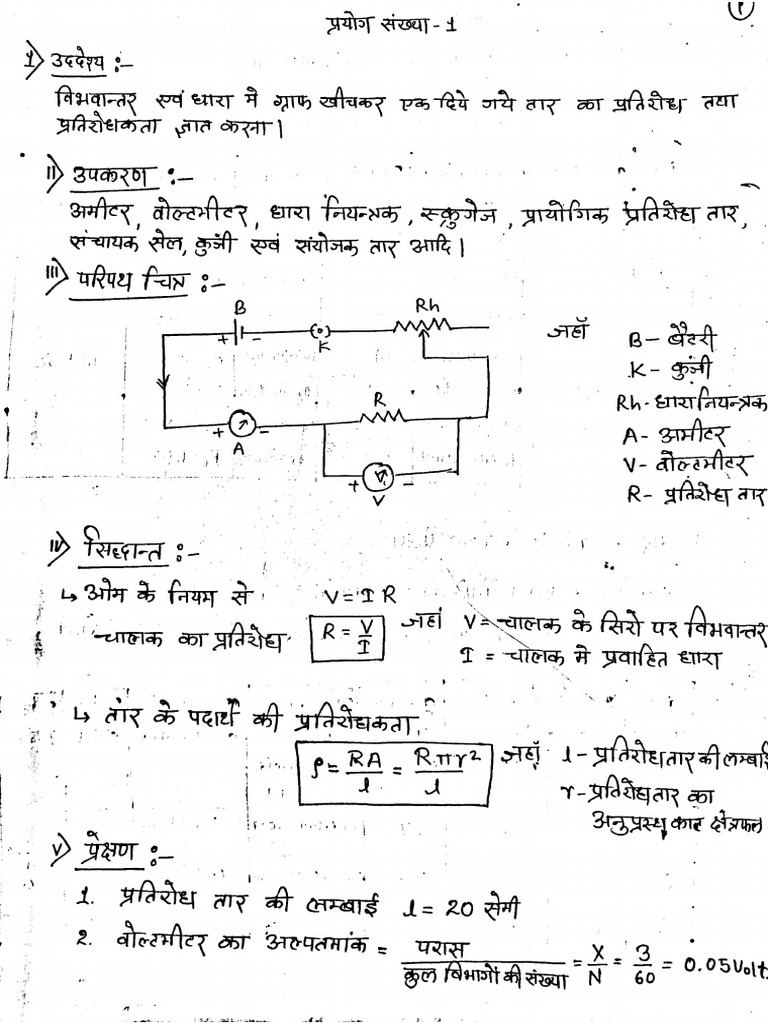 १
प्रयोग संख्या - 1
I) उददेश्य :-
विभवान्तर एवं धारा मे ग्राफ खीचकर एक दिये गये तार का प्रतिरोध तथा
प्रतिरोधकता ज्ञात करना।
II) उपकरण :-
अमीटर, वोल्टमीटर, धारा नियन्त्रक, स्क्रुगेज, प्रायोगिक प्रतिरोध तार,
संचायक सेल, कुंजी एवं संयोजक तार आदि।
III) परिपथ चित्र :-
B
Rh
+ -
K
R
+ -
A
+ -
V
जहाँ
B - बैटरी
K - कुंजी
Rh - धारा नियन्त्रक
A - अमीटर
V - वोल्टमीटर
R - प्रतिरोध तार
IV) सिद्धान्त :-
↳ ओम के नियम से V = I R
चालक का प्रतिरोध R = V/I जहां V = चालक के सिरो पर विभवान्तर
I = चालक मे प्रवाहित धारा
↳ तार के पदार्थ की प्रतिरोधकता
ρ = RA/l = Rπr²/l जहाँ l - प्रतिरोध तार की लम्बाई
r - प्रतिरोध तार का
अनुप्रस्थ काट क्षेत्रफल
V) प्रेक्षण :-
1. प्रतिरोध तार की लम्बाई l = 20 सेमी
2. वोल्टमीटर का अल्पतमांक = परास/कुल विभागो की संख्या = X/N = 3/60 = 0.05 Volt